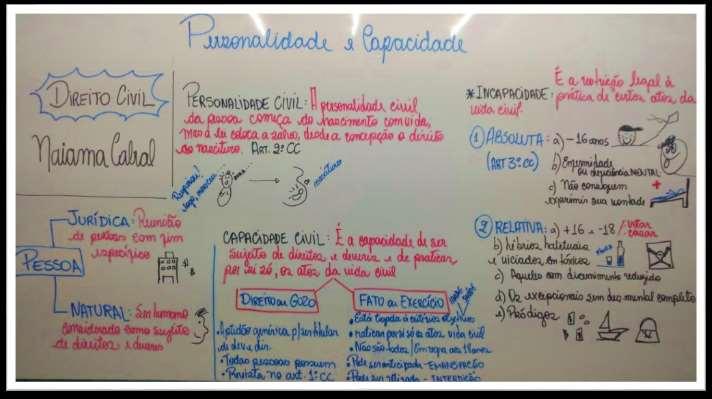 Personalidade e Capacidade
DIREITO CIVIL
Naiama Cabral
PERSONALIDADE CIVIL: A personalidade civil
da pessoa começa do nascimento com vida,
mas a lei coloca a salvo, desde a concepção o direito
do nascituro. ART. 2º CC
Respirou!
logo, nasceu
nascituro
PESSOA
JURÍDICA: Reunião
de pessoas com fim
específico
NATURAL: Ser humano
considerado como sujeito
de direitos e deveres
CAPACIDADE CIVIL: É a capacidade de ser
sujeito de direitos e deveres e de praticar
por si só, os atos da vida civil
DIREITO ou GOZO
• Aptidão genérica p/ ser titular
de dev e dir.
• Todas pessoas possuem
• Prevista no art. 1º CC
FATO ou EXERCÍCIO
• Está ligada à critérios objetivos
• Praticar por si só os atos vida civil
• Não são todos/Em regra aos 18 anos
• Pode ser antecipada - EMANCIPAÇÃO
• Pode ser - INTERDIÇÃO
* INCAPACIDADE: É a restrição legal à
prática de certos atos da
vida civil.
1 ABSOLUTA: a) - 16 anos
(ART 3º CC) b) Enfermidade
ou deficiência MENTAL
c) Não conseguem
exprimir sua vontade
2 RELATIVA: a) + 16 - 18 / votar
casar
b) hébrios habituais
e viciados em tóxicos
c) Aqueles com discernimento reduzido
d) Os excepcionais sem des. mental completo
e) Pródigos